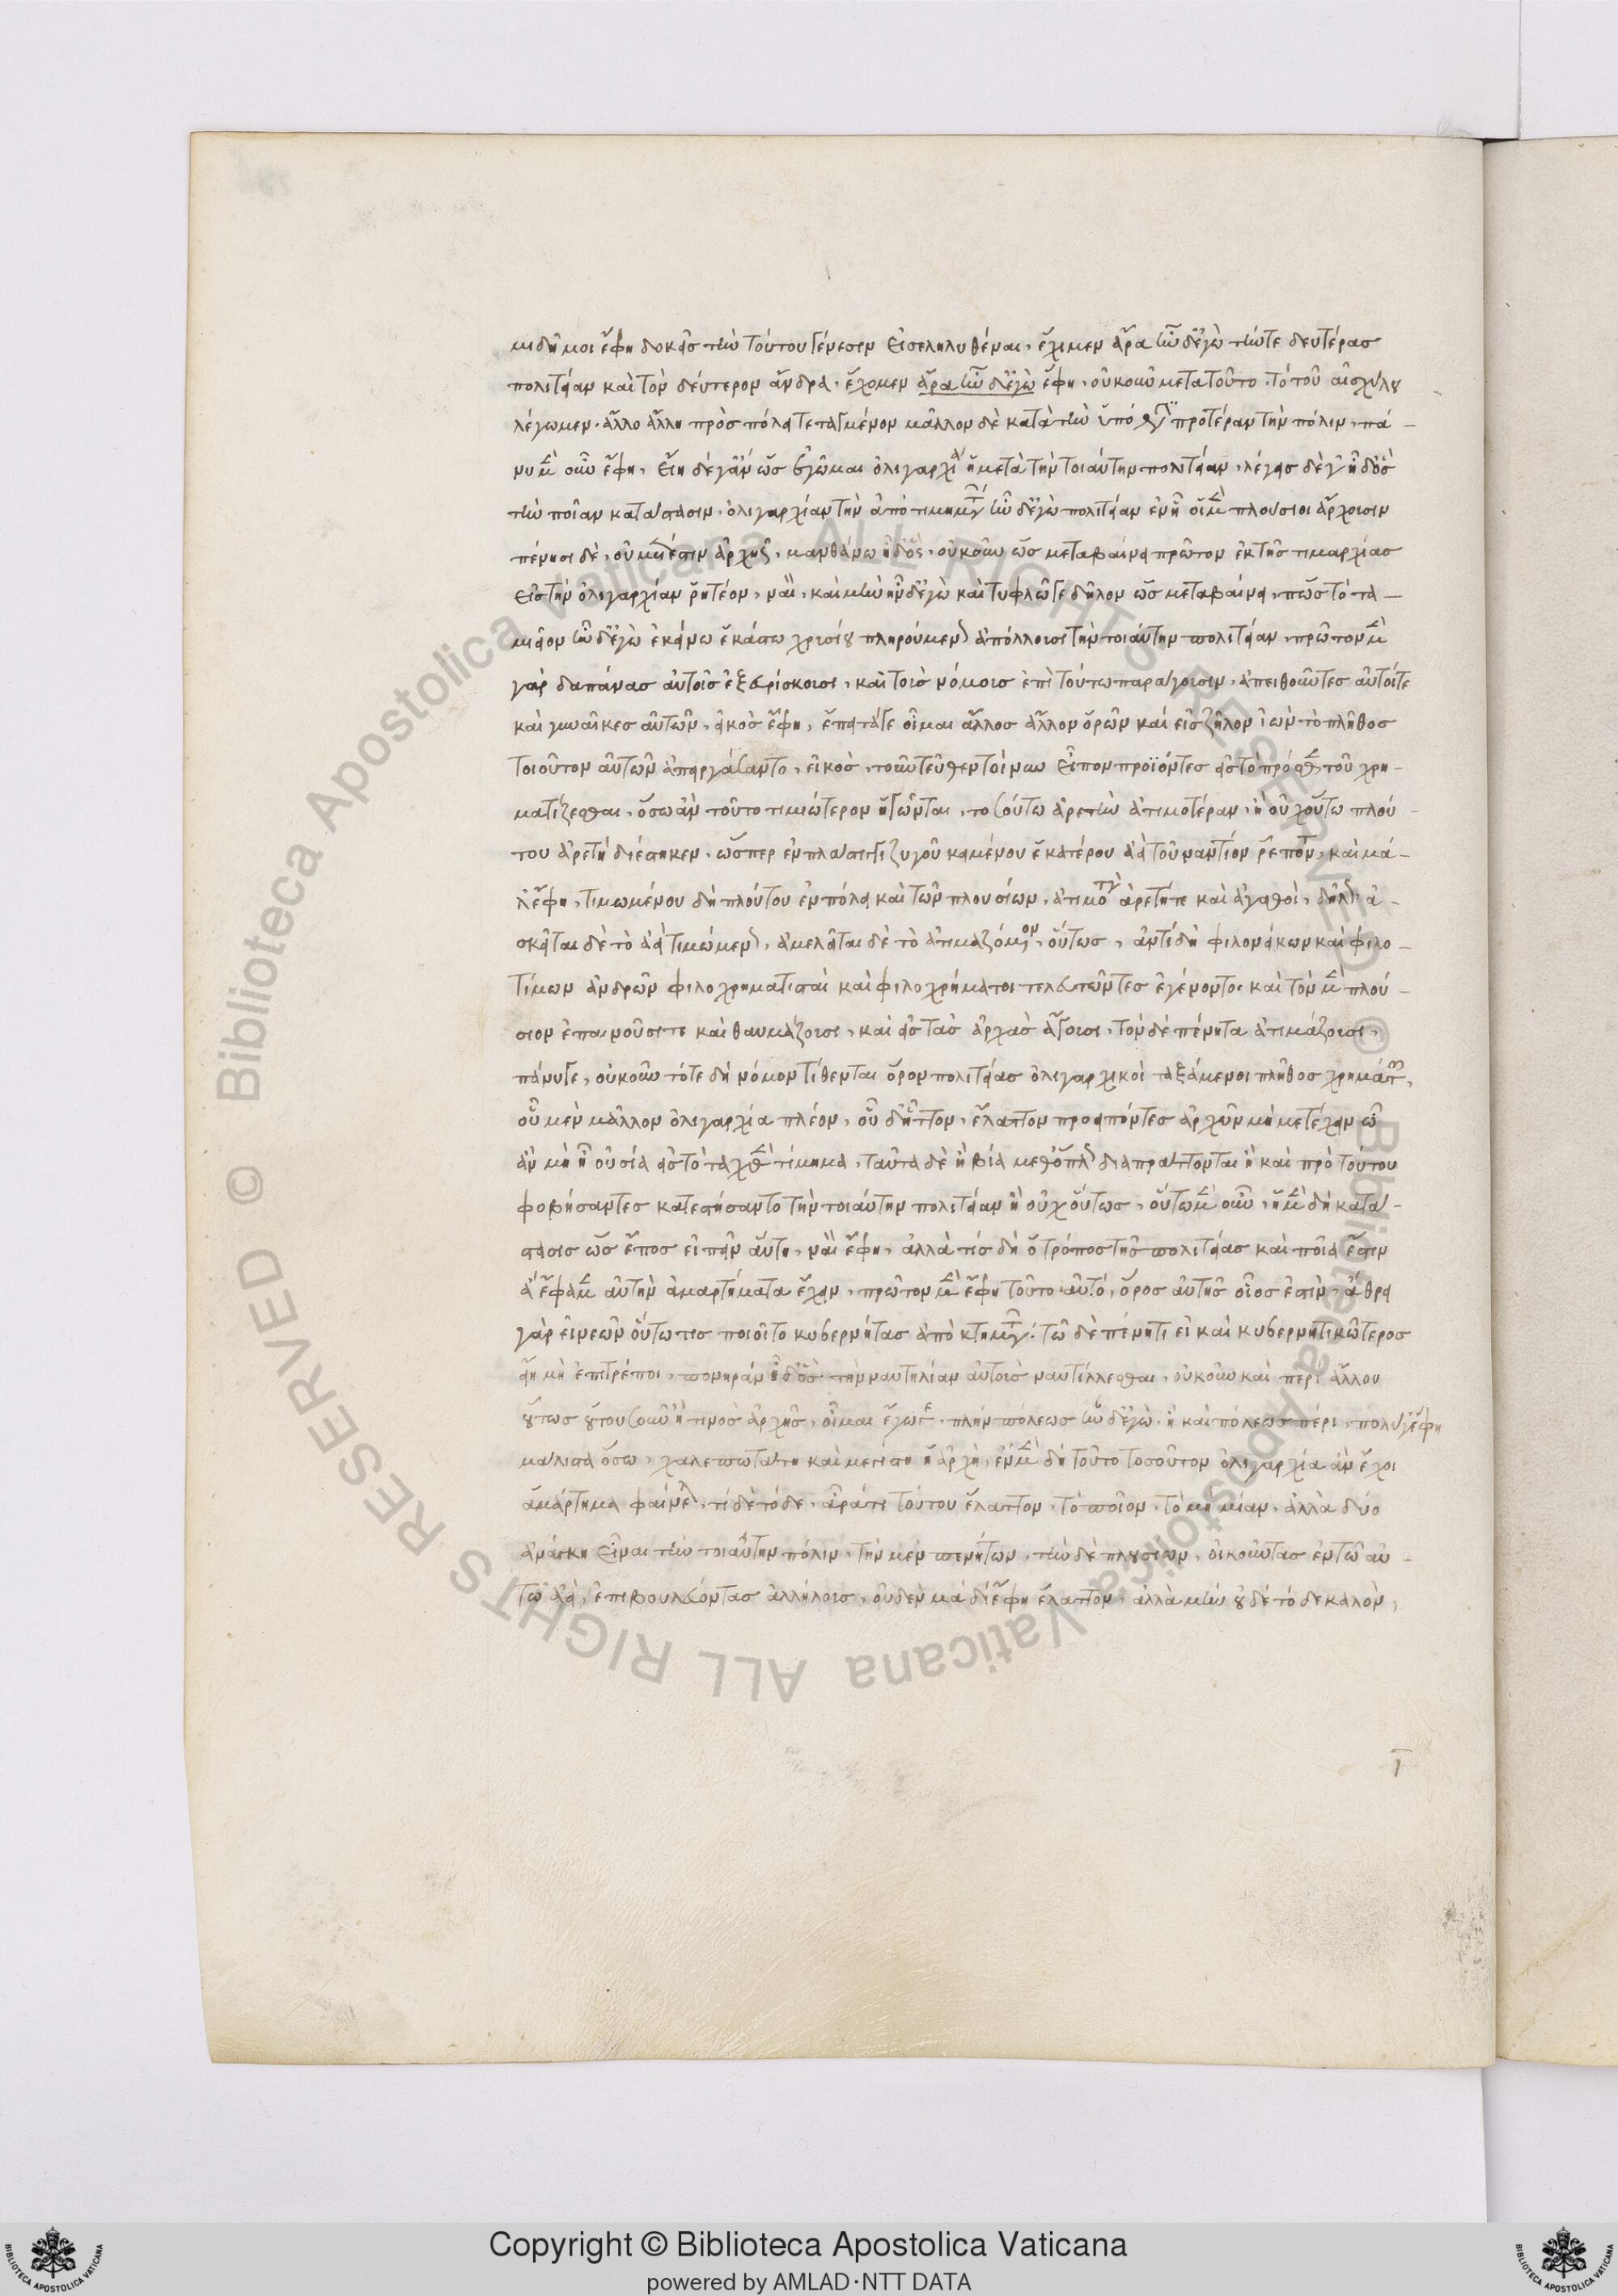 μιδῆ μοι ἔφη δοκεῖσ τὴν τούτου γένεσιν εἰσεληλυθέναι, ἔχομεν ἄρα ἦν δ' ἐγὼ τήν τε δευτέρασ
πολιτείαν καὶ τὸν δεύτερον ἄνδρα, ἔχομεν ἄρα ἦν δ' ἐγὼ ἔφη, οὐκοῦν μετατοῦτο, τὸ τοῦ αἰσχύλου
λέγωμεν, ἄλλο ἄλλη πρὸσ πόλει τεταγμένον μᾶλλον δὲ κατὰ τὴν ὑπόθεσιν προτέραν τὴν πόλιν, πά-
νυ μὲν οὖν ἔφη, εἴη δέ γ' ἂν ὡσ ἐγῶμαι ὀλιγαρχία ἡ μετὰ τὴν τοιαύτην πολιτείαν, λέγεισ δὲ ἦ δ' ὃσ
τὴν ποῖαν κατάστασιν, ὀλιγαρχίαν τὴν ἀπὸ τιμημάτων ἦν δ' ἐγὼ πολιτείαν ἐν ἧ οἱ μὲν πλούσιοι ἄρχουσιν
πένησι δὲ, οὐ μέτεστιν ἀρχῆς, μανθάνω ἦ δ' ὃς, οὐκοῦν ὡσ μεταβαίνει πρῶτον ἐκ τῆσ τιμαρχίασ
εἰσ τὴν ὀλιγαρχίαν ῥητέον, ναὶ, καὶ μὴν ἦν δ' ἐγὼ καὶ τυφλῶ γε δῆλον ὡσ μεταβαίνει, πῶσ τὸ τα-
μιεῖον ἦν δ' ἐγὼ ἐκείνω ἑκάστω χρυσίου πληρούμενον ἀπόλλυσι τὴν τοιαύτην πολιτείαν, πρῶτον μὲν
γὰρ δαπάνασ αὐτοῖσ ἐξευρίσκουσι, καὶ τοὺσ νόμουσ ἐπὶ τούτω παράγουσιν, ἀπειθοῦντεσ αὐτοί τε
καὶ γυναῖκεσ αὐτῶν, εἰκὸσ ἔφη, ἔπειτά γε οἶμαι ἄλλοσ ἄλλον ὁρῶν καὶ εἰσ ζῆλον ἰὼν τὸ πλῆθοσ
τοιοῦτον αὐτῶν ἀπειργάσαντο, εἰκὸσ, τοὐντεῦθεν τοίνυν εἶπον προϊόντεσ εἰσ τὸ πρόσθεν τοῦ χρη-
ματίζεσθαι, ὅσω ἂν τοῦτο τιμιώτερον ἡγῶνται, τοσούτω ἀρετὴν ἀτιμοτέραν, ἢ οὐχ οὕτω πλού-
του ἀρετὴ διέστηκεν, ὥσπερ ἐν πλάστιγγι ζυγοῦ κειμένου ἑκατέρου ἀεὶ τοὐναντίον ῥέποντε, καὶ μά-
λ' ἔφη, τιμωμένου δὴ πλούτου ἐν πόλει καὶ τῶν πλουσίων, ἀτιμοτέρα ἀρετή τε καὶ ἀγαθοὶ, δῆλον, ἀ-
σκεῖται δὲ τὸ ἀεὶ τιμώμενον, ἀμελεῖται δὲ τὸ ἀτιμαζόμενον, οὕτωσ, ἀντὶ δὴ φιλονείκων καὶ φιλο-
τίμων ἀνδρῶν φιλοχρηματισταὶ καὶ φιλοχρήματοι τελευτῶντεσ ἐγένοντο, καὶ τὸν μὲν πλού-
σιον ἐπαινοῦσί τε καὶ θαυμάζουσι, καὶ εἰσ τὰσ ἀρχὰσ ἄγουσι, τὸν δὲ πένητα ἀτιμάζουσι,
πάνυ γε, οὐκοῦν τότε δὴ νόμον τίθενται ὅρον πολιτείασ ὀλιγαρχικοὶ ταξάμενοι πλῆθοσ χρημάτων,
οὗ μὲν μᾶλλον ὀλιγαρχία πλέον, οὗ δ' ἧττον, ἔλαττον προειπόντεσ ἀρχῶν μὴ μετέχειν ὧ
ἂν μὴ ἦ οὐσία εἰσ τὸ ταχθὲν τίμημα, ταῦτα δὲ ἢ βία μεθ' ὅπλων διαπράττονται ἢ καὶ πρὸ τούτου
φοβήσαντεσ κατεστήσαντο τὴν τοιαύτην πολιτείαν ἢ οὐχ οὕτωσ, οὕτω μὲν οὖν, ἡ μὲν δὴ κατά-
στασισ ὡσ ἔποσ εἰπεῖν αὕτη, ναὶ ἔφη, ἀλλὰ τίσ δὴ ὁ τρόποσ τῆσ πολιτείασ καὶ ποῖα ἔστιν
ἃ ἔφαμεν αὐτὴν ἁμαρτήματα ἔχειν, πρῶτον μὲν ἔφη τοῦτο αὐτό, ὅροσ αὐτῆσ οἷοσ ἐστὶν, ἄθρει
γὰρ εἰ νεῶν οὕτω τισ ποιοῖτο κυβερνήτασ ἀπὸ κτημάτων, τῶ δὲ πένητι εἰ καὶ κυβερνητικώτεροσ
εἴη μὴ ἐπιτρέποι, πονηρὰν ἦ δ' ὃσ τὴν ναυτηλίαν αὐτοὺσ ναυτίλλεσθαι, οὐκοῦν καὶ περὶ ἄλλου
οὕτωσ ὁτουοῦν ἤ τινοσ ἀρχῆσ, οἶμαι ἔγωγε, πλὴν πόλεωσ ἦν δ' ἐγὼ, ἢ καὶ πόλεωσ πέρι, πολύ γ' ἔφη
μάλιστα ὅσω, χαλεπωτάτη καὶ μεγίστη ἡ ἀρχὴ, ἓν μὲν δὴ τοῦτο τοσοῦτον ὀλιγαρχία ἂν ἔχοι
ἁμάρτημα φαίνεται, τί δὲ τόδε, ἆρά τι τούτου ἔλαττον, τὸ ποῖον, τὸ μὴ μίαν, ἀλλὰ δύο
ἀνάγκη εἶναι τὴν τοιαύτην πόλιν, τὴν μὲν πενήτων, τὴν δὲ πλουσίων, οἰκοῦντασ ἐν τῶ αὐ-
τῶ ἀεὶ, ἐπιβουλεύοντασ ἀλλήλοισ, οὐδὲν μὰ δί' ἔφη ἔλαττον, ἀλλὰ μὴν οὐδὲ τόδε καλὸν,
Copyright © Biblioteca Apostolica Vaticana
powered by AMLAD·NTT DATA